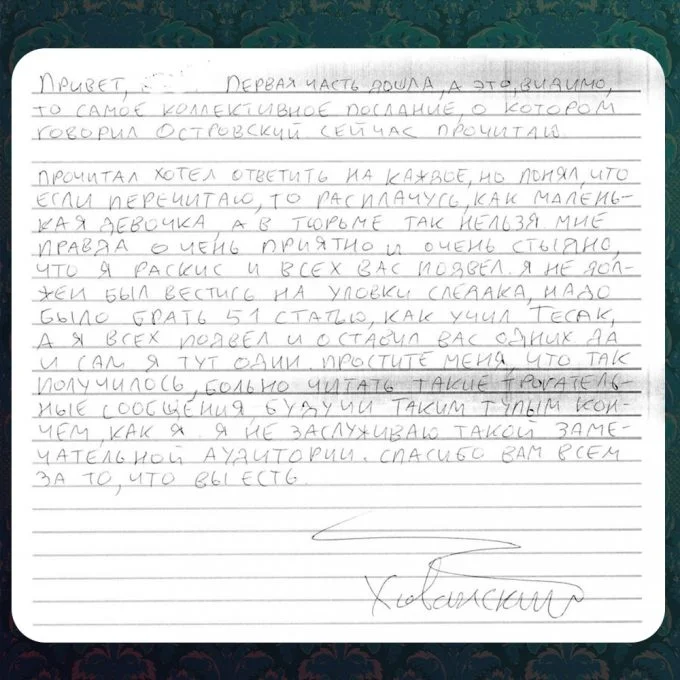 ПРИВЕТ, ПЕРВАЯ ЧАСТЬ ДОШЛА, А ЭТО, ВИДИМО,
ТО САМОЕ КОЛЛЕКТИВНОЕ ПОСЛАНИЕ, О КОТОРОМ
ГОВОРИЛ ОСТРОВСКИЙ СЕЙЧАС ПРОЧИТАЮ.
ПРОЧИТАЛ ХОТЕЛ ОТВЕТИТЬ НА КАЖДОЕ, НО ПОНЯЛ, ЧТО
ЕСЛИ ПЕРЕЧИТАЮ, ТО РАСПЛАЧУСЬ, КАК МАЛЕНЬ-
КАЯ ДЕВОЧКА, А В ТЮРЬМЕ ТАК НЕЛЬЗЯ МНЕ
ПРАВДА ОЧЕНЬ ПРИЯТНО И ОЧЕНЬ СТЫДНО,
ЧТО Я РАСКИС И ВСЕХ ВАС ПОДВЁЛ. Я НЕ ДОЛ-
ЖЕН БЫЛ ВЕСТИСЬ НА УЛОВКИ СЛЕДАКА, НАДО
БЫЛО БРАТЬ 51 СТАТЬЮ, КАК УЧИЛ ТЕСАК,
А Я ВСЕХ ПОДВЕЛ И ОСТАВИЛ ВАС ОДНИХ ДА
И САМ Я ТУТ ОДИН. ПРОСТИТЕ МЕНЯ, ЧТО ТАК
ПОЛУЧИЛОСЬ, БОЛЬНО ЧИТАТЬ ТАКИЕ ТРОГАТЕЛЬ-
НЫЕ СООБЩЕНИЯ, БУДУЧИ ТАКИМ ТУПЫМ КОН-
ЧЕМ, КАК Я. Я НЕ ЗАСЛУЖИВАЮ ТАКОЙ ЗАМЕ-
ЧАТЕЛЬНОЙ АУДИТОРИИ. СПАСИБО ВАМ ВСЕМ
ЗА ТО, ЧТО ВЫ ЕСТЬ.
Хованский